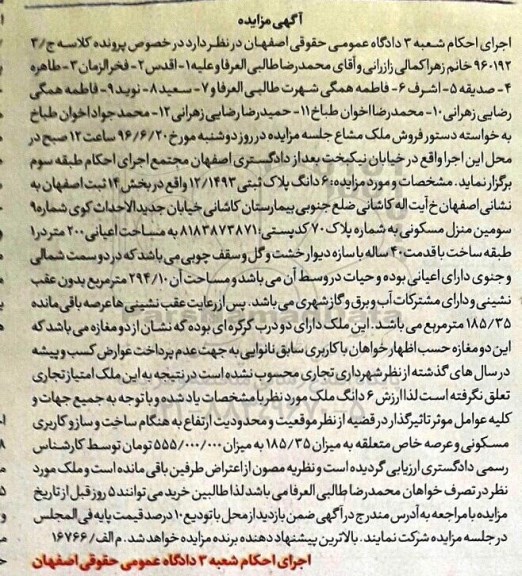 آگهی مزایده
اجرای احکام شعبه ۳ دادگاه عمومی حقوقی اصفهان در نظر دارد در خصوص پرونده کلاسه ج/۳
۹۶۰۱۹۲ خانم زهرا کمالی زازرانی و آقای محمدرضا طالبی العرفا و علیه ۱- اقدس ۲- فخرالزمان ۳- طاهره
۴- صدیقه ۵- اشرف ۶- فاطمه همگی شهرت طالبی العرفا و ۷- سعید ۸- نوید ۹- فاطمه همگی
رضایی زهرانی ۱۰- محمدرضا اخوان طباخ ۱۱- حمیدرضا رضایی زهرانی ۱۲- محمدجواد اخوان طباخ
به خواسته دستور فروش ملک مشاع جلسه مزایده در روز دوشنبه مورخ ۹۶/۶/۲۰ ساعت ۱۲ صبح در
محل این اجرا واقع در خیابان نیکبخت بعد از دادگستری اصفهان مجتمع اجرای احکام طبقه سوم
برگزار نماید. مشخصات و مورد مزایده: ۶ دانگ پلاک ثبتی ۱۲/۱۴۹۳ واقع در بخش ۱۴ ثبت اصفهان به
نشانی اصفهان خ آیت اله کاشانی ضلع جنوبی بیمارستان کاشانی خیابان جدیدالاحداث کوی شماره ۹
سومین منزل مسکونی به شماره پلاک ۷۰ کدپستی: ۸۱۸۳۸۷۳۸۷۱ به مساحت اعیانی ۲۰۰ متر در ۱
طبقه ساخت با قدمت ۴۰ ساله با سازه دیوار خشت و گل و سقف چوبی می باشد که در دو سمت شمالی
و جنوی دارای اعیانی بوده و حیات در وسط آن می باشد و مساحت آن ۲۹۴/۱۰ مترمربع بدون عقب
نشینی و دارای مشترکات آب و برق و گاز شهری می باشد. پس از رعایت عقب نشینی ها عرصه باقی مانده
۱۸۵/۳۵ مترمربع می باشد. این ملک دارای دو درب کرکره ای بوده که نشان از دو مغازه می باشد که
این دو مغازه حسب اظهار خواهان با کاربری سابق نانوایی به جهت عدم پرداخت عوارض کسب و پیشه
در سال های گذشته از نظر شهرداری تجاری محسوب نشده است در نتیجه به این ملک امتیاز تجاری
تعلق نگرفته است لذا ارزش ۶ دانگ ملک مورد نظر با مشخصات یاد شده و با توجه به جمیع جهات و
کلیه عوامل موثر تاثیرگذار در قضیه از نظر موقعیت و محدودیت ارتفاع به هنگام ساخت و ساز و کاربری
مسکونی و عرصه خاص متعلقه به میزان ۱۸۵/۳۵ به میزان ۵۵۵/۰۰۰/۰۰۰ تومان توسط کارشناس
رسمی دادگستری ارزیابی گردیده است و نظریه مصون از اعتراض طرفین باقی مانده است و ملک مورد
نظر در تصرف خواهان محمدرضا طالبی العرفا می باشد لذا طالبین خرید می توانند ۵ روز قبل از تاریخ
مزایده با مراجعه به آدرس مندرج در آگهی ضمن بازدید از محل با تودیع ۱۰ درصد قیمت پایه فی المجلس
در جلسه مزایده شرکت نمایند. بالاترین پیشنهاد دهنده برنده مزایده خواهد شد. م الف/ ۱۶۷۶۶
اجرای احکام شعبه ۳ دادگاه عمومی حقوقی اصفهان